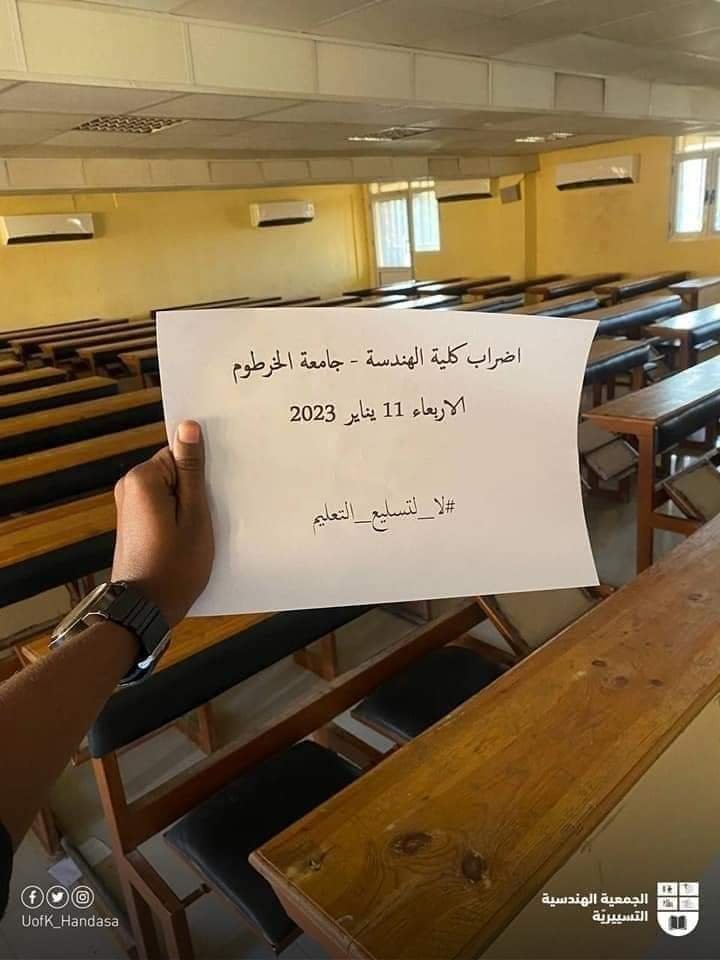 اضراب كلية الهندسة - جامعة الخرطوم
الاربعاء 11 يناير 2023
#لا_لتسليع_التعليم
UofK_Handasa
الجمعية الهندسية
التسييريّة